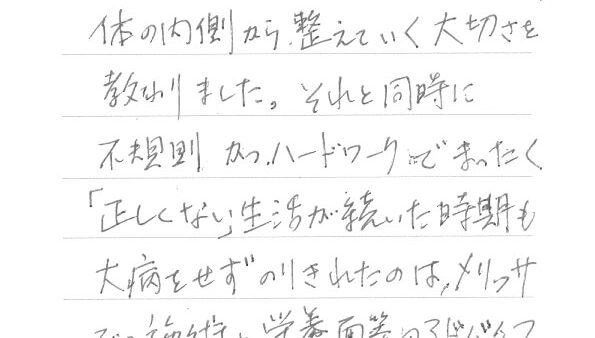 体の内側から、整えていく大切さを
教わりました。それと同時に
不規則かつ、ハードワークでまったく
「正しくない」生活が続いた時期も
大病をせずのりきれたのは、メリッサ
での施術と、栄養面等のアドバイス